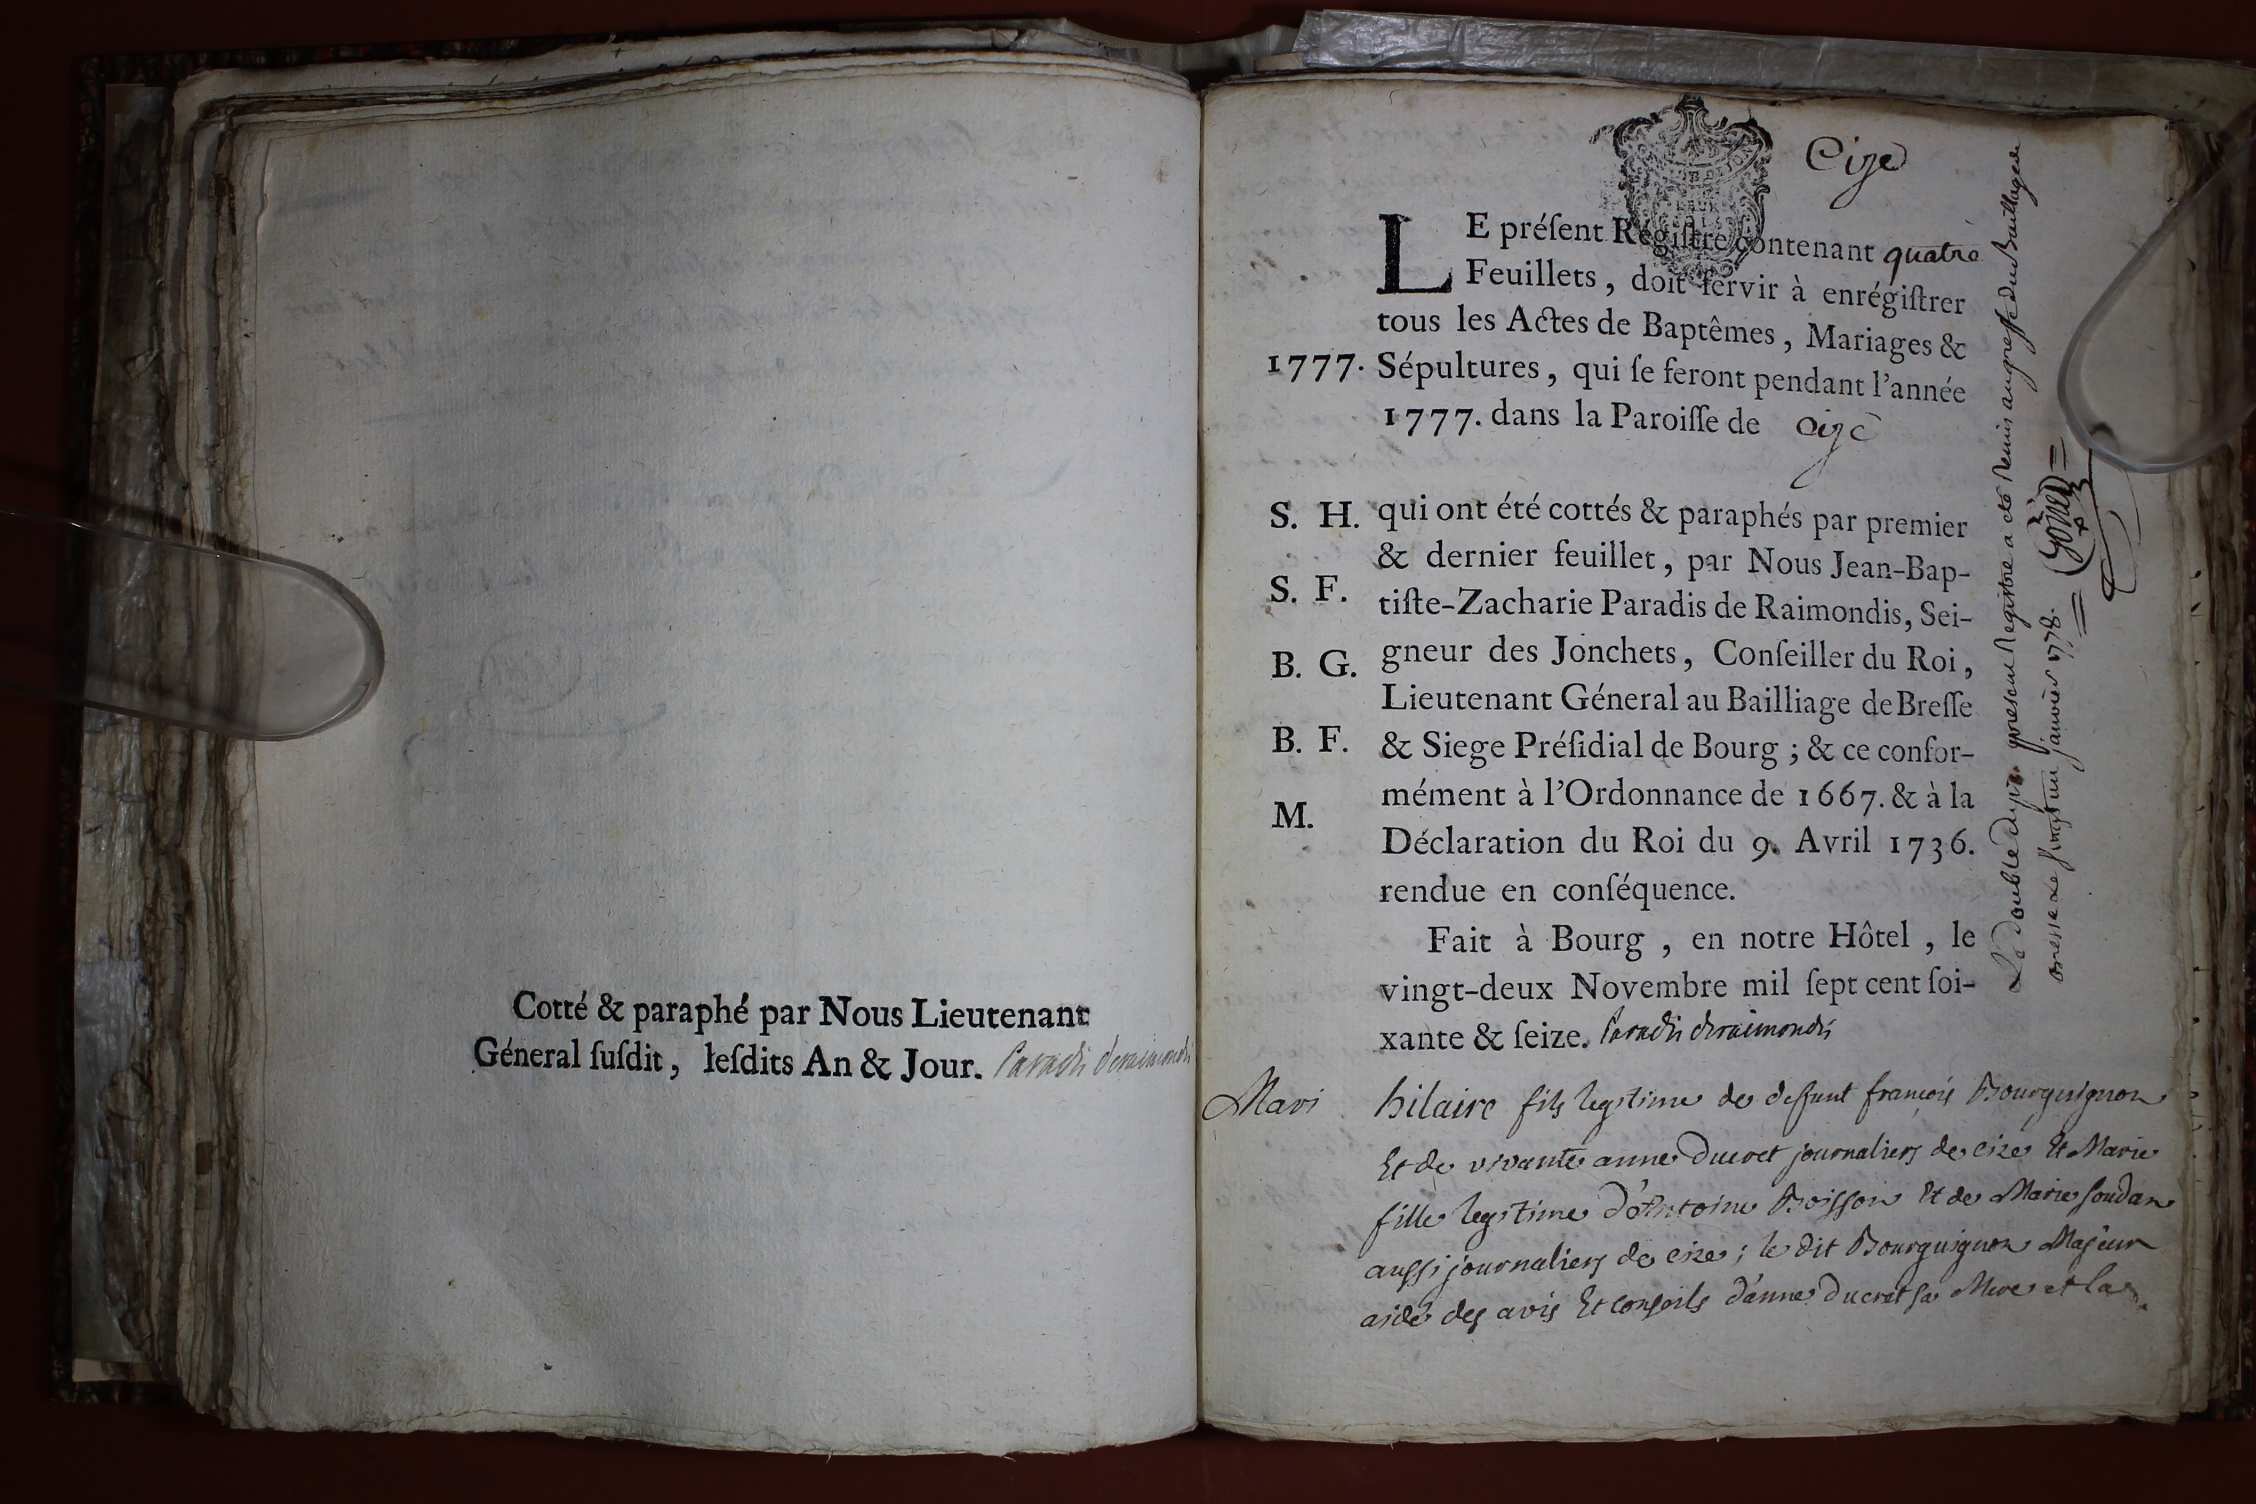 Cotté & paraphé par Nous Lieutenant
Géneral ſuſdit, leſdits An & Jour. Paradis deraimondis
Cize
LE préſent Régiſtre contenant quatre
Feuillets, doit ſervir à enrégiſtrer
tous les Actes de Baptêmes, Mariages &
1777. Sépultures, qui ſe feront pendant l'année
1777. dans la Paroiſſe de Cize
S. H. qui ont été cottés & paraphés par premier
& dernier feuillet, par Nous Jean-Bap-
S. F. tiſte-Zacharie Paradis de Raimondis, Sei-
B. G. gneur des Jonchets, Conſeiller du Roi,
Lieutenant Géneral au Bailliage de Breſſe
B. F. & Siege Préſidial de Bourg ; & ce confor-
M. mément à l'Ordonnance de 1667. & à la
Déclaration du Roi du 9. Avril 1736.
rendue en conſéquence.
Fait à Bourg, en notre Hôtel, le
vingt-deux Novembre mil ſept cent ſoi-
xante & ſeize. Paradis deraimondis
Mari hilaire fils legitime de deffunt françois Bourguignon
Et de vivante anne Ducret journaliers de cize Et Marie
fille legitime d'Antoine Boisson Et de Marie Soudan
aussi journaliers de cize ; le dit Bourguignon Majeur
aidé des avis Et conseils d'anne Ducret sa Mere et la
Le double du present Registre a eté remis au greffe du Bailliage de
Bresse le vingt un janvier 1778.